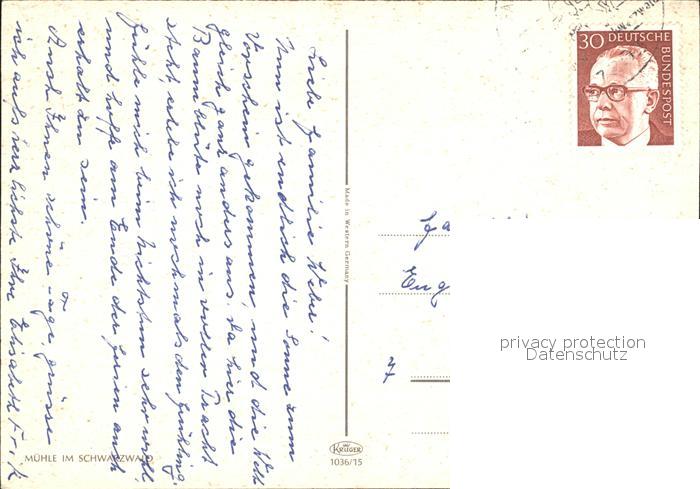 Liebe Familie Weber!
Nun ist endlich die Sonne zum
Vorschein gekommen, und die Welt
gleich ganz anders aus. Da hier die
Baumblüte noch in voller Pracht
steht, erlebe ich nochmals den Frühling.
Fühle mich beim Nichtstun sehr wohl,
und hoffe am Ende der Ferien auch
erholt zu sein.
Auch Ihnen schöne Tage, grüsse
ich aufs herzlichste Ihre Elisabeth
MÜHLE IM SCHWARZWALD
Made in Western Germany
KRÜGER
1036/15
30 DEUTSCHE
BUNDESPOST
Fa
Eug
7
privacy protection
Datenschutz